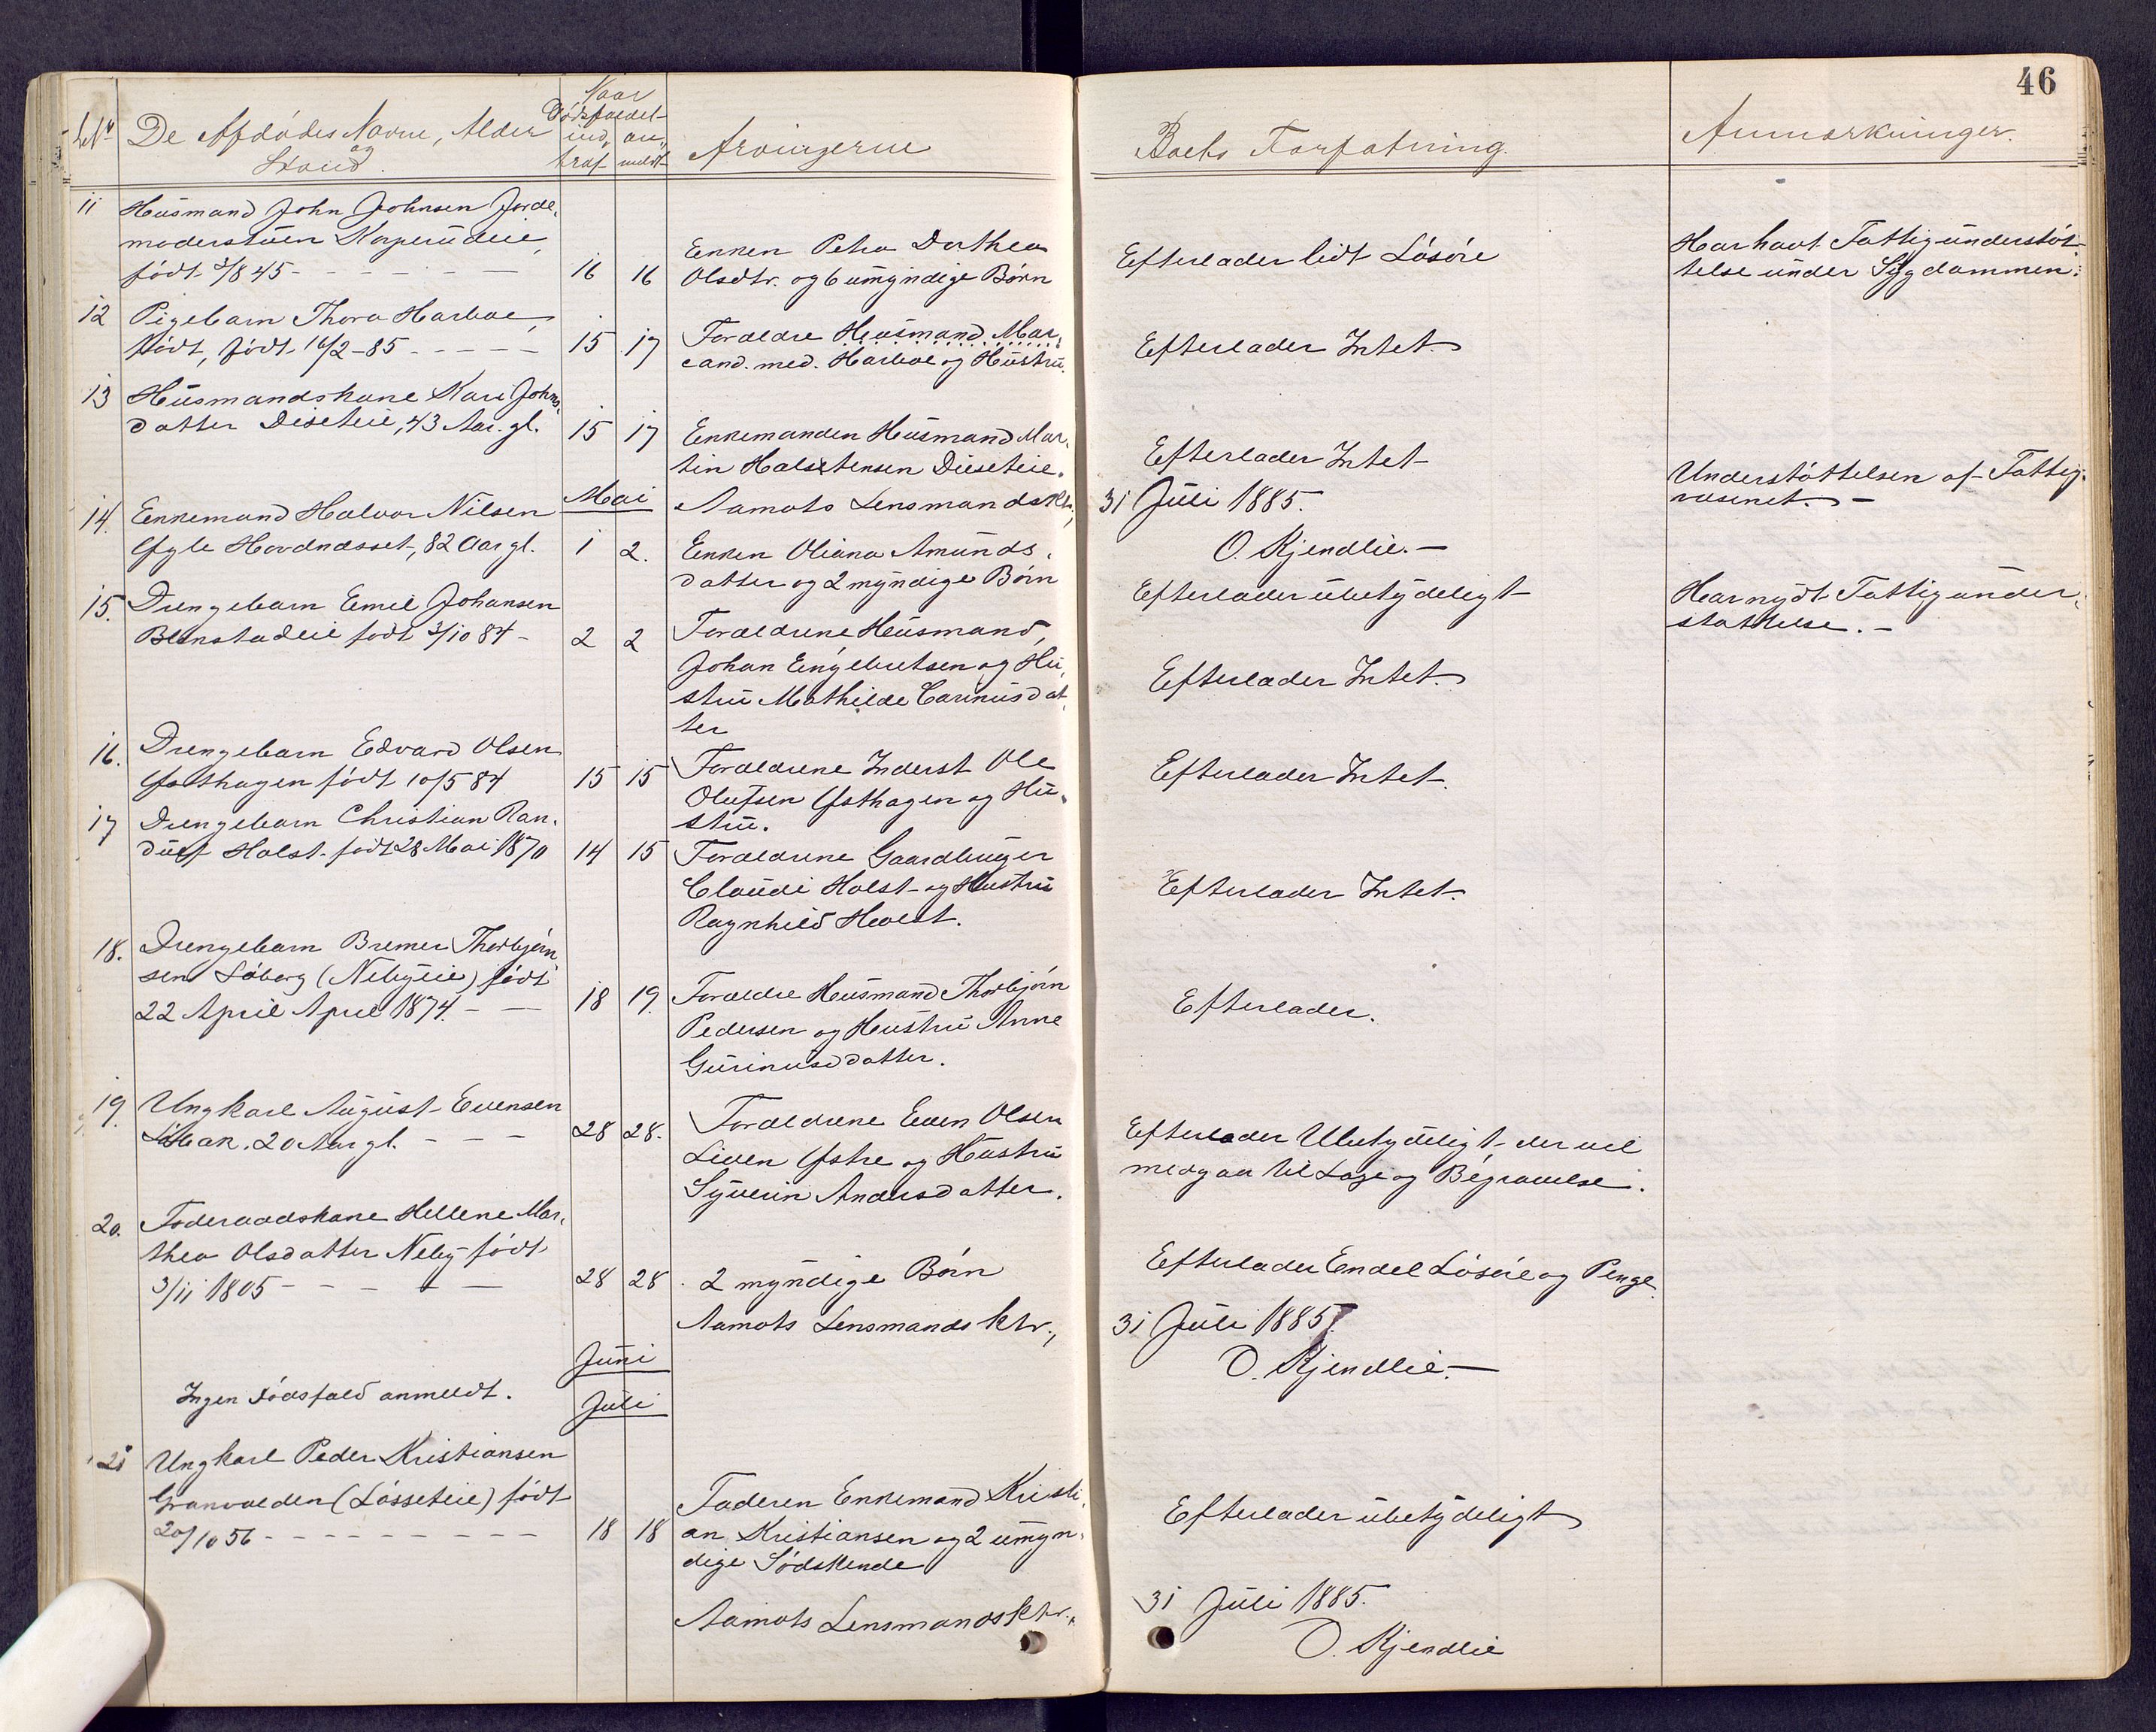 46
De Afdödes Navne, Alder
og
Stand.
Naar
Dödsfaldet
ind- an-
traf meldt
Arvingerne
Boets Forfatning.
Anmærkninger.
11 Husmand John Johnsen Jorde-
moderstuen
födt 3/8 45 - - - - - - 16 16
Enken Petra Dorthea
Olsdtr. og 6 umyndige Börn
Efterlader lidt Lösöre
Har havt Fattigunderstöt-
telse under Sygdommen.
12 Pigebarn Thora Harboe,
födt, födt 16/2-85 - - - - - 15 17
Forældre Husmand Mar-
cand. med. Harboe og Hustru.
Efterlader Intet
13 Husmandskone Kari Johns-
datter Diseteie, 43 Aar gl. 15 17
Enkemanden Husmand Mar-
tin Halstensen Diseteie.
Efterlader Intet
Mai
Aamots Lensmandsktr.,
31 Juli 1885.
O. Kjendlie. —
14. Enkemand Halvor Nilsen
Ygle Hovdnæsset, 82 Aar gl. 1 2.
Enken Oliana Amunds-
datter og 2 myndige Börn
Efterlader ubetydeligt
Understöttelsen af Fattig-
væsenet. —
15. Drengebarn Emil Johansen
födt 3/10 84 - 2 2
Forældrene Husmand,
Johan Engebretsen og Hu-
stru Mathilde Carinusdat-
ter
Efterlader Intet.
Har nydt Fattigunder-
støttelse. —
16. Drengebarn Edvard Olsen
Østhagen födt 10/5 84 15 15
Forældrene Inderst Ole
Olufsen Østhagen og Hu-
stru.
Efterlader Intet.
17 Drengebarn Christian Ran-
dulf Holst födt 28 Mai 1870 14 15
Forældrene Gaardbruger
Claudi Holst og Hustru
Ragnhild Holst.
Efterlader Intet.
18. Drengebarn Bremer Thorbjörn-
sen Söberg (Nebyeie) födt
22 April April 1874. - - 18 19.
Forældre Husmand Thorbjörn
Pedersen og Hustru Anne
Gurinusdatter.
Efterlader.
19. Ungkarl August Evensen
20 Aar gl. - - - 28 28.
Forældrene Even Olsen
Liven Østre og Hustru
Syverin Andersdatter.
Efterlader Ubetydeligt der vil
medgaa til Læge og Begravelse.
20. Föderaadskone Hellene Mar-
thea Olsdatter Neby födt
3/11 1805 - - - - - 28 28
2 myndige Börn
Efterlader Endel Lösöre og Penge
Aamots Lensmands ktr.,
31 Juli 1885.
O. Kjendlie. —
Juni
Ingen Dödsfald anmeldt.
Juli
21 Ungkarl Peder Kristiansen
Granvolden (Lösseteie) födt
20/10 56 - - - - - - - - 18 18
Faderen Enkemand Kristi-
an Kristiansen og 2 umyn-
dige Södskende
Efterlader ubetydeligt
Aamots Lensmandsktr.,
31 Juli 1885.
O. Kjendlie